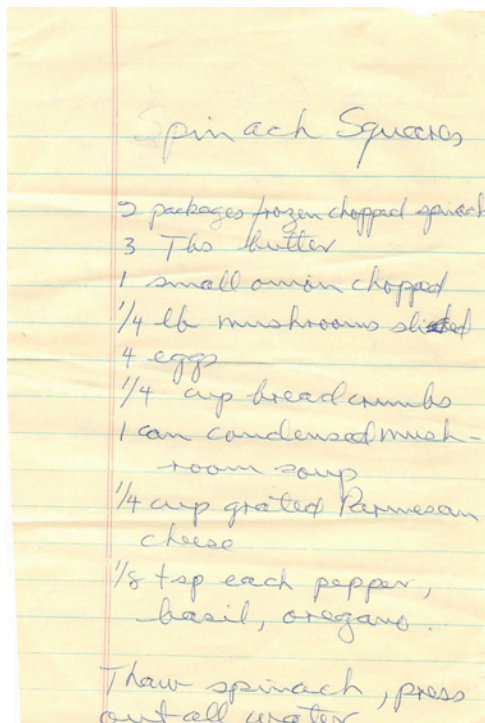 Spinach Squares
2 packages frozen chopped spinach
3 Tbs butter
1 small onion chopped
1/4 lb mushrooms sliced
4 eggs
1/4 cup breadcrumbs
1 can condensed mush-
room soup
1/4 cup grated Parmesan
cheese
1/8 tsp each pepper,
basil, oregano.
Thaw spinach, press
out all water